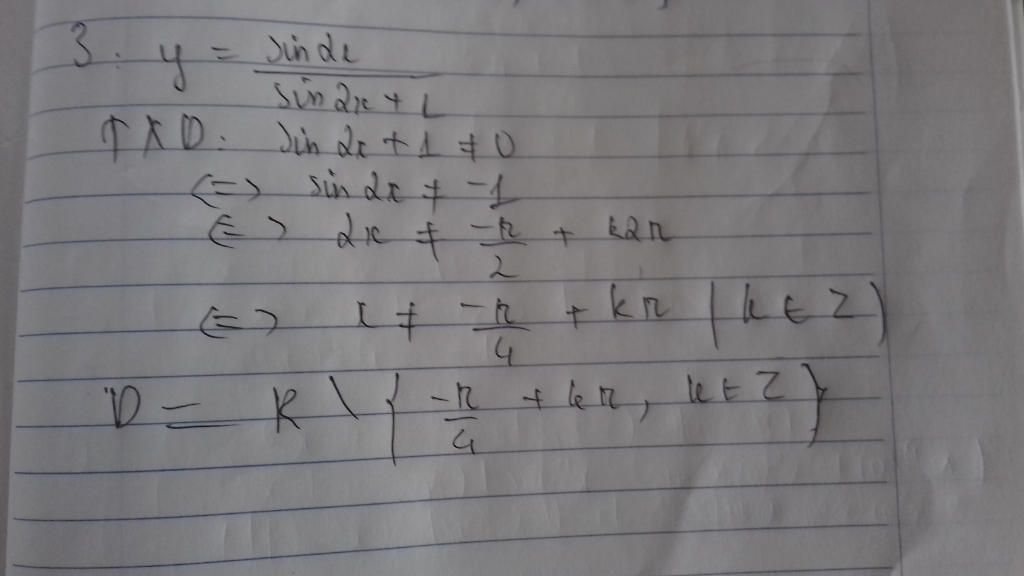 3. y = sin2x / sin2x + 1
TXĐ: sin2x + 1 ≠ 0
<=> sin2x ≠ -1
<=> 2x ≠ -π/2 + k2π
<=> x ≠ -π/4 + kπ (k ∈ Z)
D = R \ { -π/4 + kπ, k ∈ Z }